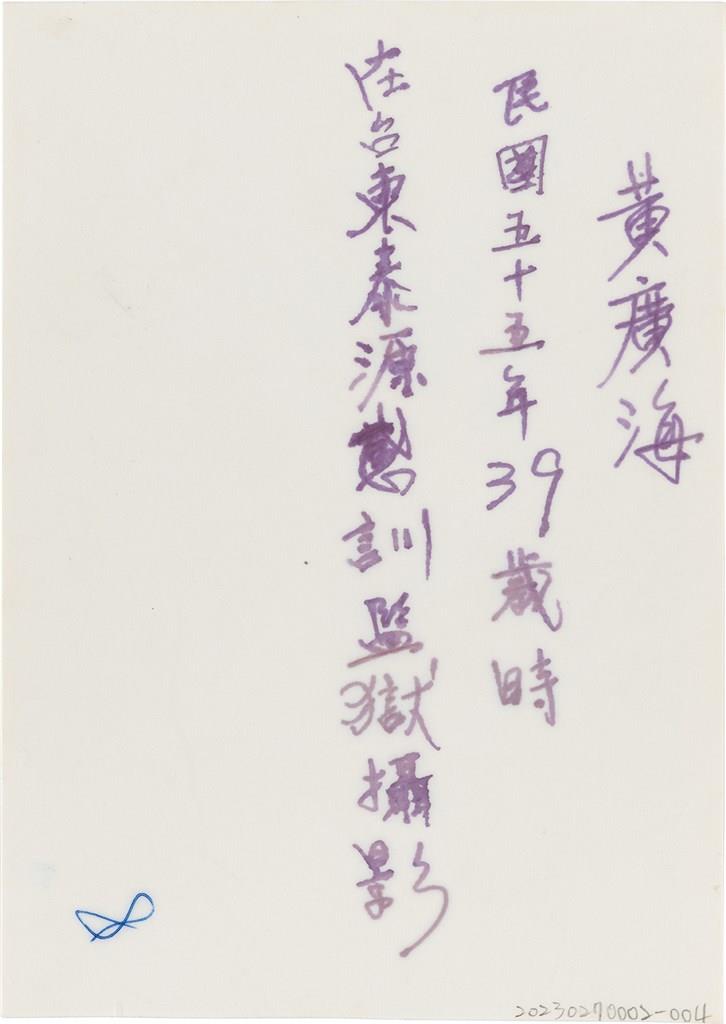 黃廣海
民國五十五年39歲時
在台東泰源感訓監獄攝影
20230270002-004